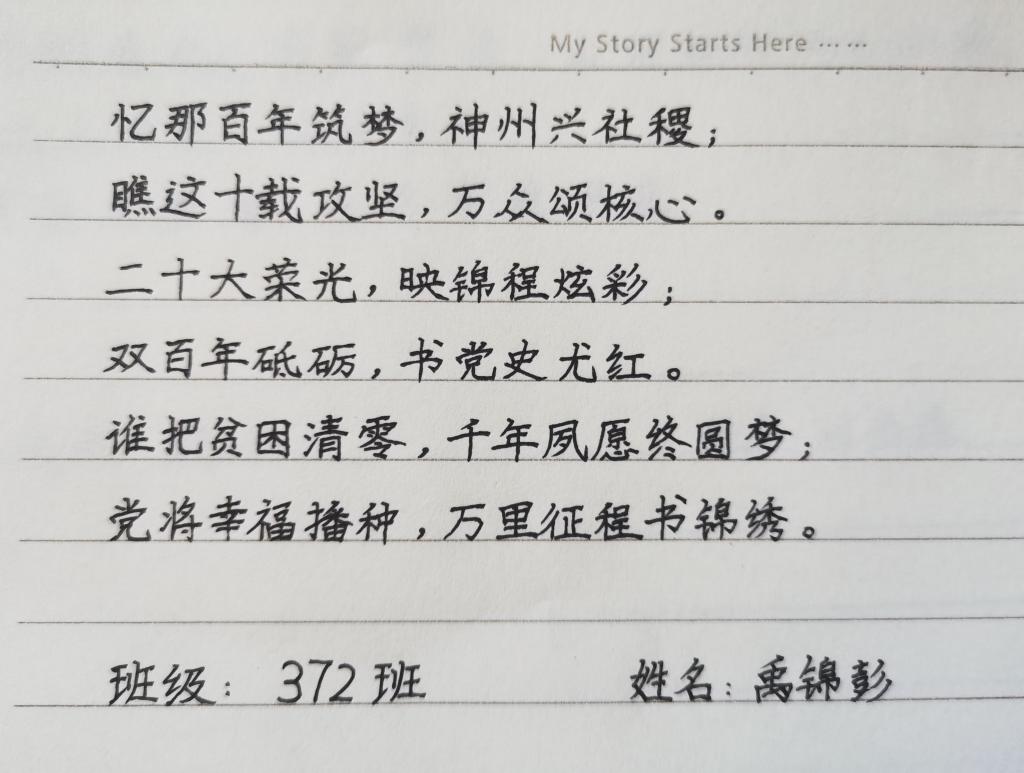 My Story Starts Here ……
忆那百年筑梦，神州兴社稷；
瞧这十载攻坚，万众颂核心。
二十大荣光，映锦程炫彩；
双百年砥砺，书党史尤红。
谁把贫困清零，千年夙愿终圆梦；
党将幸福播种，万里征程书锦绣。
班级：372班 姓名：禹锦彭